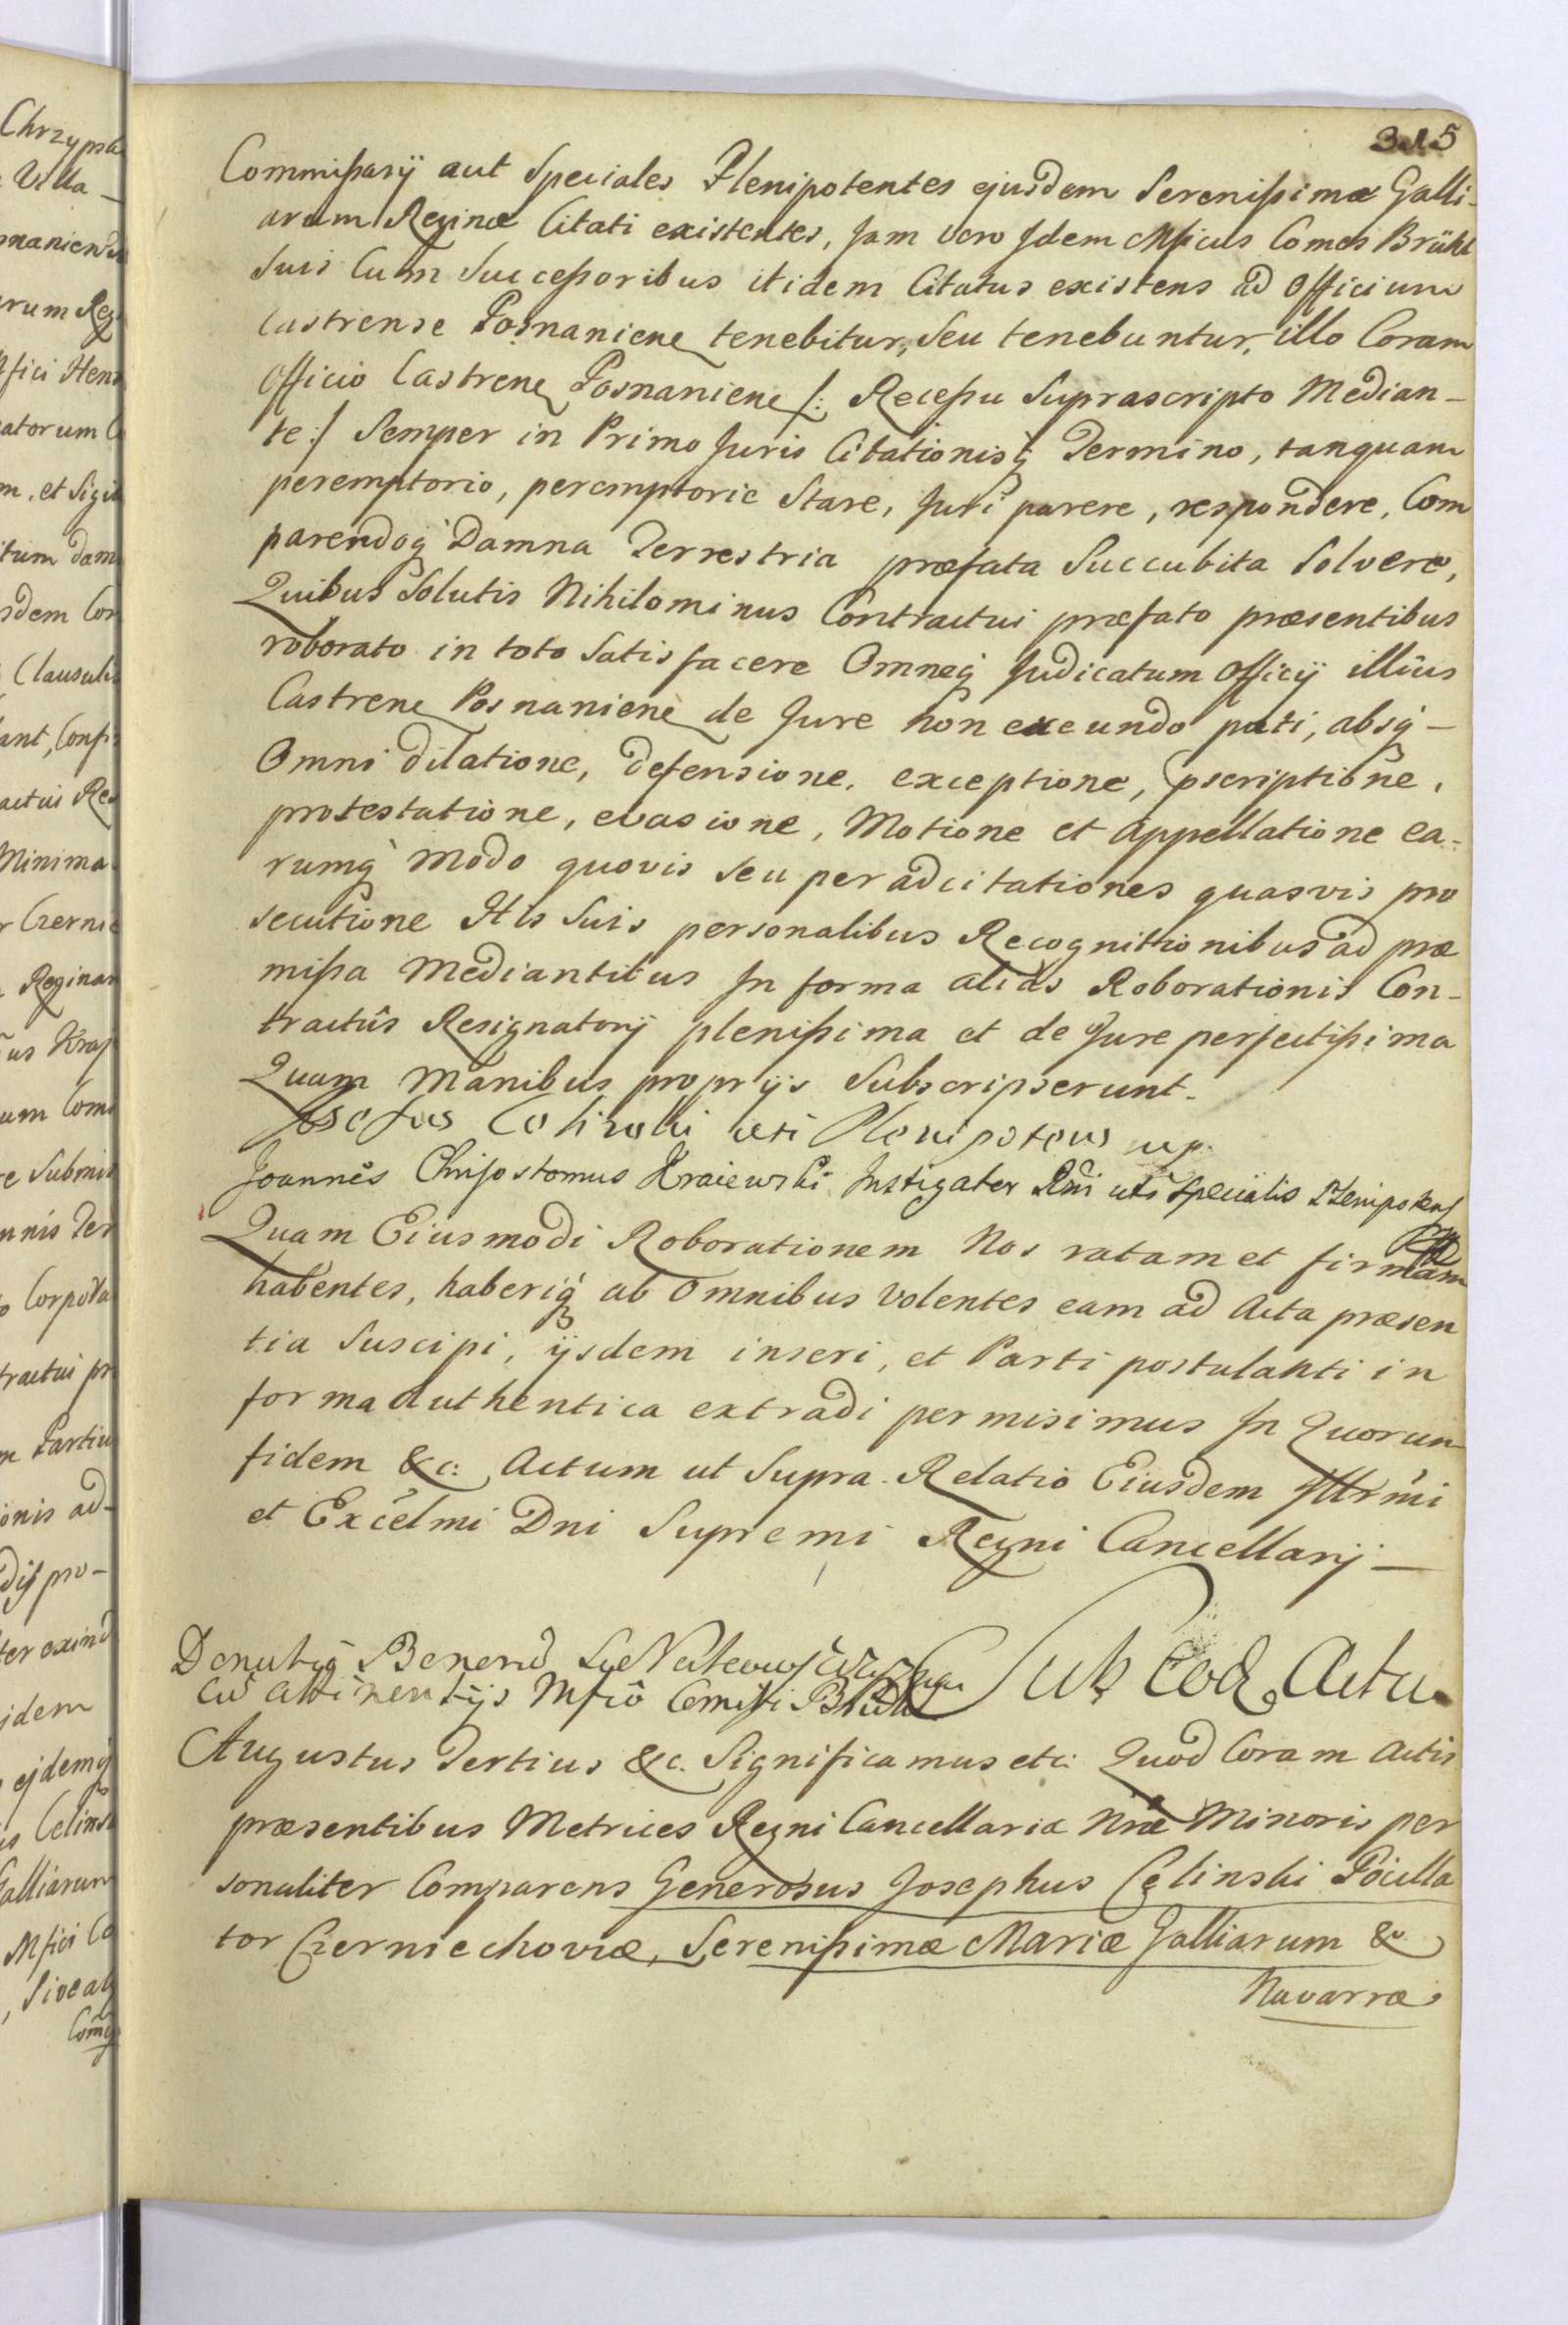 315
Commißarÿ aut Speciales Plenipotentes ejusdem Serenißimæ Galli-
arum Reginæ Citati existentes, Jam vero Jdem Mficus Comes Brühl
Suis Cum Succeßoribus itidem Citatus existens ad Officium
Castrense Posnaniene tenebitur, Seu tenebuntur, illo Coram
Officio Castrene Posnaniene /: Receßu Suprascripto Median-
te :/ Semper in Primo Juris Citationisq Termino, tanquam
peremptorio, peremptorie Stare, Juri parere, respondere, Com
parendoq Damna Terrestria præfata Succubita Solvere,
Quibus Solutis Nihilominus Contractui præfato præsentibus
roborato in toto Satisfacere Omneq Judicatum Officÿ illius
Castrene Posnaniene de Jure non exeundo pati, absq-
Omni dilatione, defensione, exceptione, pscriptione,
protestatione, evasione, Motione et Appellatione ea-
rumq Modo quovis seu per adcitationes quasvis pro
secutione His Suis personalibus Recognittionibus ad præ
mißa Mediantibus Jn forma aliàs Roborationis Con-
tractûs Resignatorÿ plenißima et de Jure perfectißima
Quam Manibus proprÿs Subscripserunt.
Josefus Celinski uti Plenipotens mp.
Joannes Chrisostomus Kraiewski Instigator Rni uti Specialis Plenipotens
Quam Eiusmodi Roborationem Nos ratam et firmam
habentes, haberiq ab Omnibus Volentes eam ad Acta præsen
tia Suscipi, ÿsdem inseri, et Parti postulanti in
forma Authentica extradi permisimus Jn Quorum
fidem &c: Actum ut Supra. Relatio Eiusdem Jllrmi
et Excelmi Dni Supremi Regni Cancellarÿ-
Sub Eod Actu
cũ Attinentÿs Mficô Comiti
Augustus Tertius &c. Significamus etc: Quod Coram Actis
præsentibus Metrices Regni Cancellariæ Nræ Minoris per
sonaliter Comparens Generosus Josephus Celinski Pocilla
tor Czerniechoviæ, Serenißimæ Mariæ Galliarum &
Navarræ